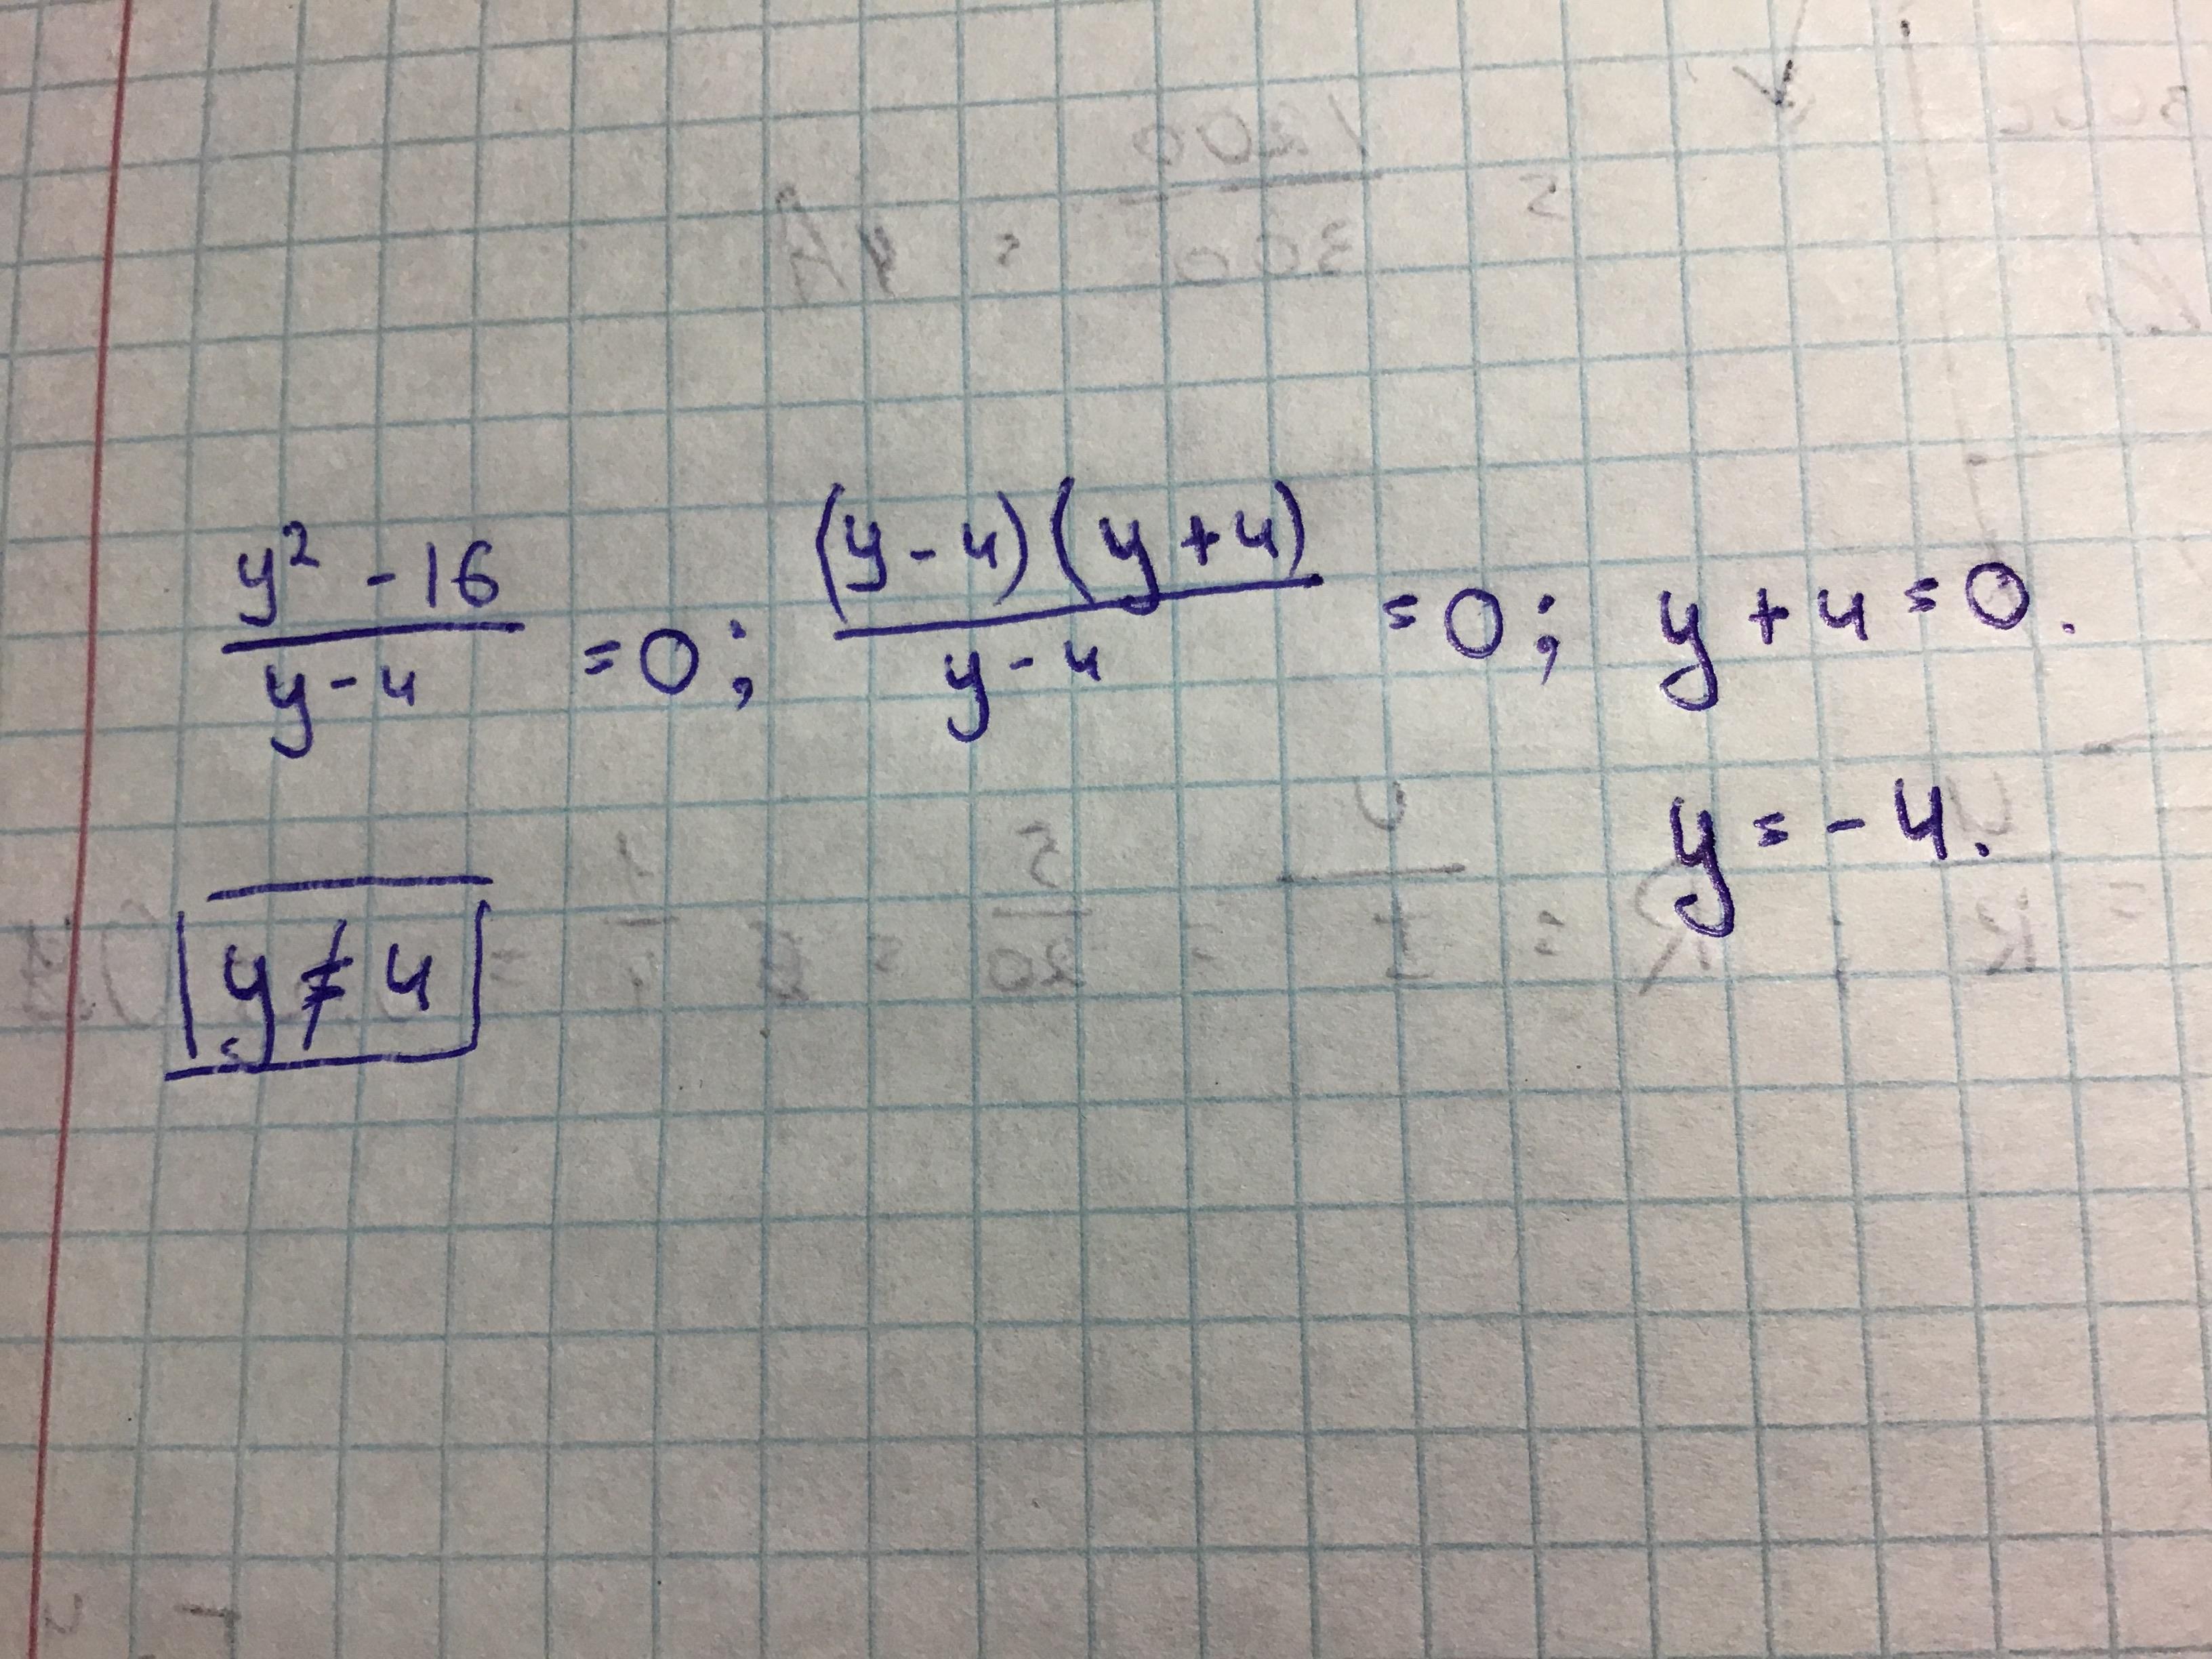 (y² - 16)/(y - 4) = 0; ((y - 4)(y + 4))/(y - 4) = 0; y + 4 = 0.
y = - 4.
y ≠ 4